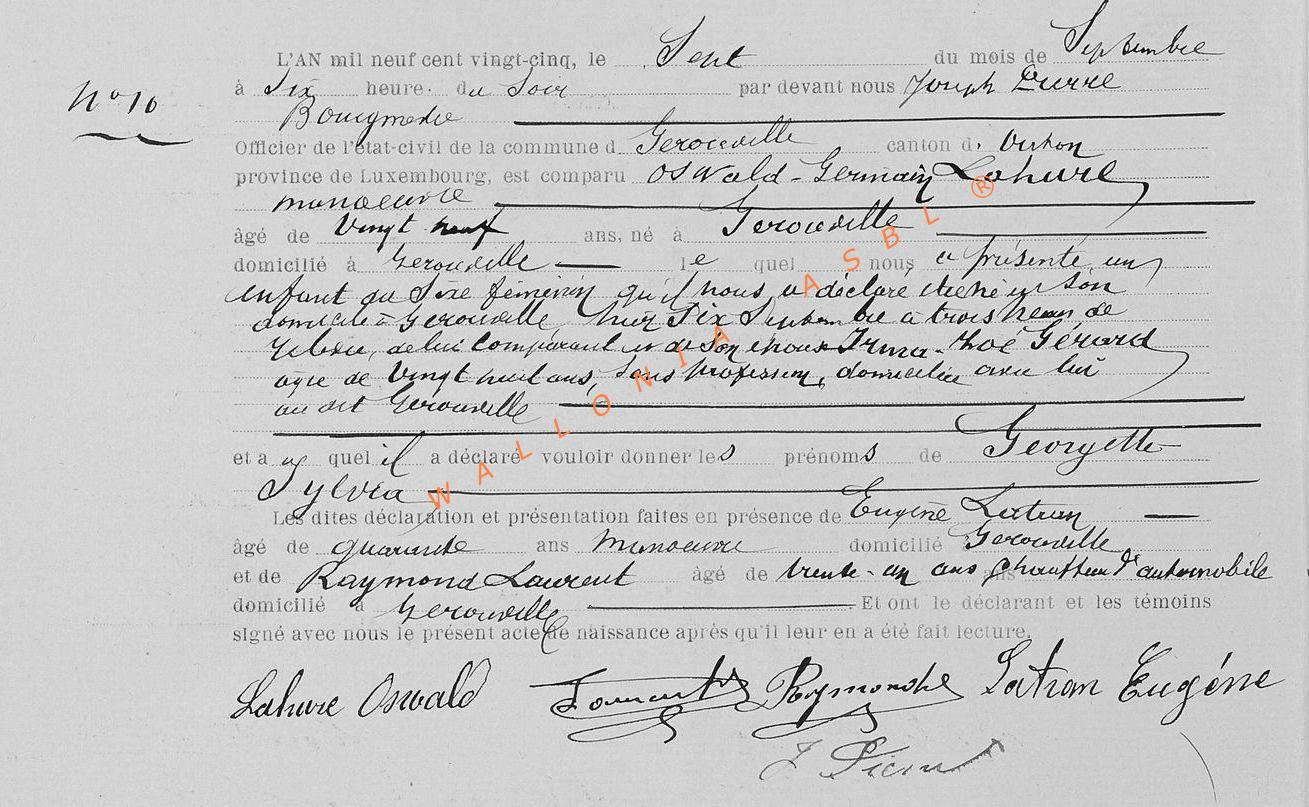 L'AN mil neuf cent vingt-cinq, le Sept du mois de Septembre
N° 10
à Six heure du Soir par devant nous Joseph Pierre
Bourgmestre
Officier de l'état-civil de la commune d Gerouville canton d. Virton
province de Luxembourg, est comparu Oswald-Germain Lahure
manoeuvre
âgé de Vingt neuf ans, né à Gerouville
domicilié à Gerouville le quel nous a présenté un
enfant du Sexe féminin qu'il nous a déclaré être né en Son
domicile à Gerouville hier Six Septembre à trois heures de
relevée, de lui Comparant et de Son épouse Irma-Zoé Gérard
agée de Vingt huit ans, Sans profession, domiciliée avec lui
au dit Gerouville
et a u quel il a déclaré vouloir donner les prénoms de Georgette
Sylvia
Les dites déclaration et présentation faites en présence de Eugène Latran
âgé de quarante ans manoeuvre domicilié à Gerouville
et de Raymond Laurent âgé de trente-un ans Chauffeur d'automobile
domicilié à Gerouville Et ont le déclarant et les témoins
signé avec nous le présent acte de naissance après qu'il leur en a été fait lecture.
Lahure Oswald Raymond Latran Eugéne
WALLONIA ASBL ®